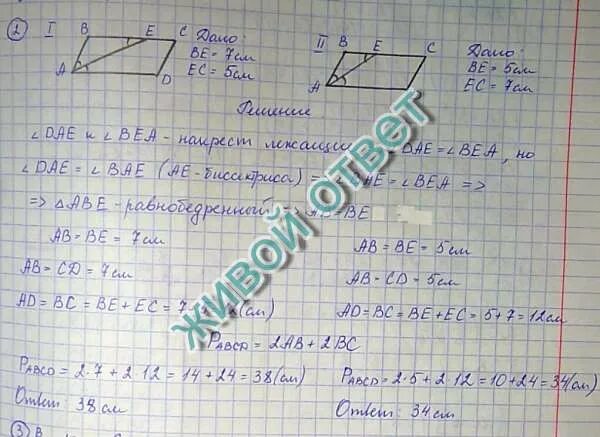 2 I B E C Дано: II B E C Дано:
BE = 7см BE = 5см
A D EC = 5см A EC = 7см
Решение
∠DAE и ∠BEA - накрест лежащие ∠DAE = ∠BEA, но
∠DAE = ∠BAE (AE - биссектриса) => ∠BAE = ∠BEA =>
=> △ABE - равнобедренный => AB = BE
AB = BE = 7см AB = BE = 5см
AB = CD = 7см AB = CD = 5см
AD = BC = BE + EC = 7 (см) AD = BC = BE + EC = 5 + 7 = 12см
PABCD = 2AB + 2BC
PABCD = 2·7 + 2·12 = 14 + 24 = 38(см) PABCD = 2·5 + 2·12 = 10 + 24 = 34(см)
Ответ: 38см Ответ: 34см
3 B
ЖИВОЙ ОТВЕТ